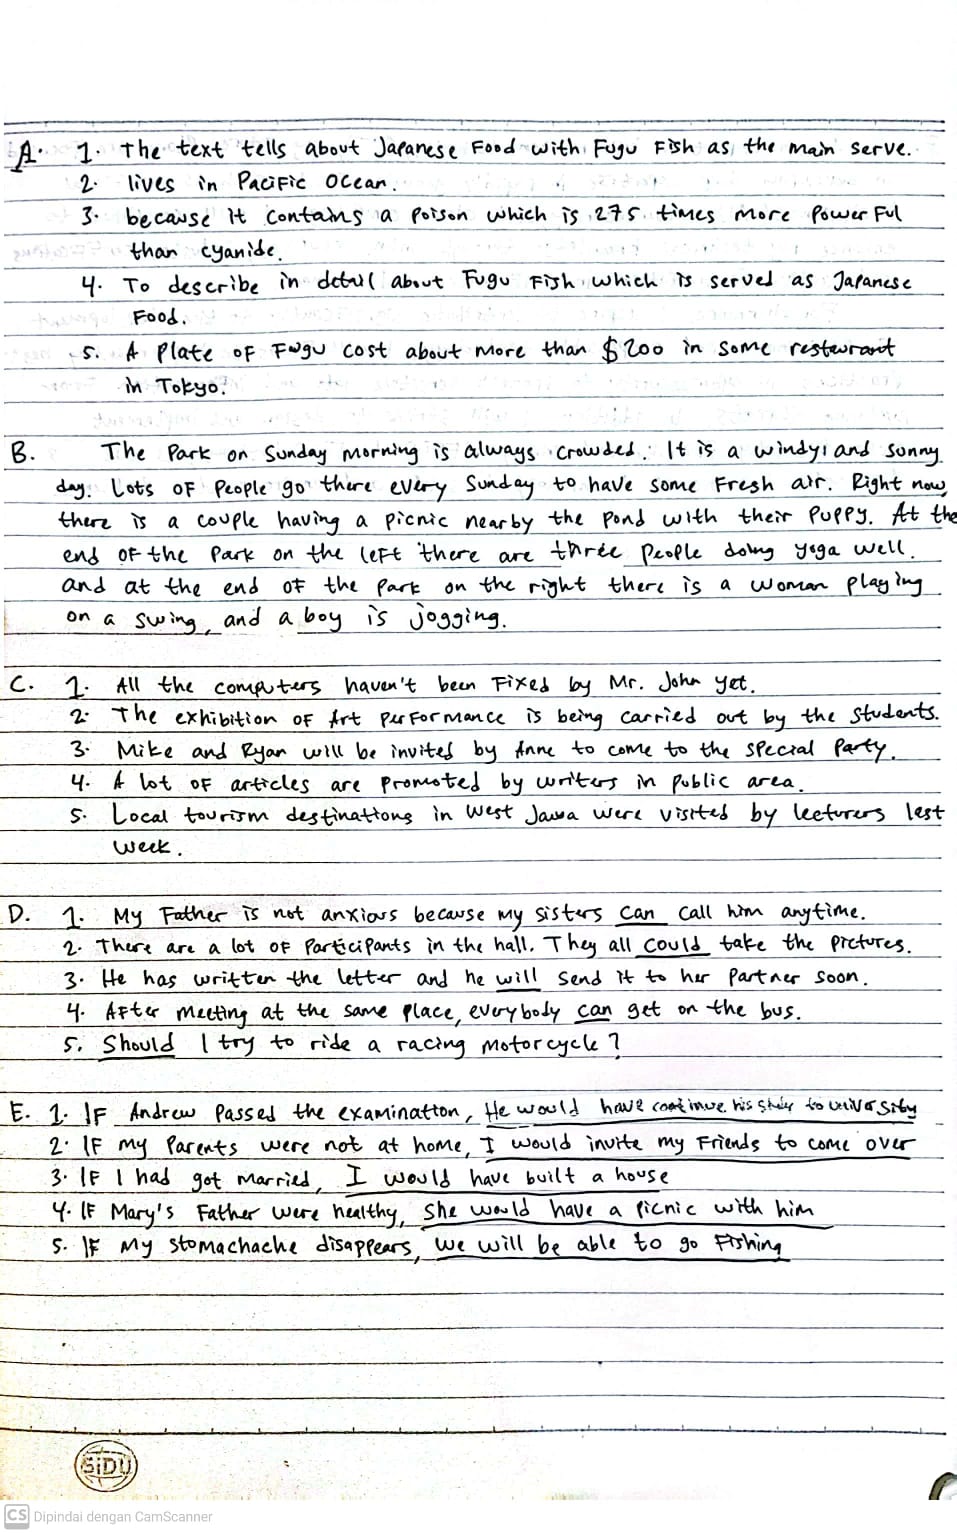 A. 1. The text tells about Japanese Food with Fugu Fish as the main serve.
2. lives in Pacific Ocean.
3. because it contains a poison which is 275 times more powerful
than cyanide.
4. To describe in detail about Fugu Fish which is served as Japanese
Food.
5. A Plate of Fugu cost about more than $200 in some resteurant
in Tokyo.
B. The Park on Sunday morning is always crowded. It is a windy, and sunny
day. Lots of people go there every Sunday to have some fresh air. Right now,
there is a couple having a picnic nearby the pond with their puppy. At the
end of the park on the left there are three people doing yoga well.
and at the end of the park on the right there is a woman playing
on a swing, and a boy is jogging.
C. 1. All the computers haven't been fixed by Mr. John yet.
2. The exhibition of Art performance is being carried out by the students.
3. Mike and Ryan will be invited by Anne to come to the special party.
4. A lot of articles are promoted by writers in public area.
5. Local tourism destinations in West Jawa were visited by lecturers last
week.
D. 1. My Father is not anxious because my sisters can call him anytime.
2. There are a lot of participants in the hall. They all could take the pictures.
3. He has written the letter and he will send it to her partner soon.
4. After meeting at the same place, everybody can get on the bus.
5. Should I try to ride a racing motorcycle?
E. 1. If Andrew passed the examination, He would have continue his study to university
2. If my parents were not at home, I would invite my friends to come over
3. If I had got married, I would have built a house
4. If Mary's Father were healthy, she would have a picnic with him
5. If my stomachache disappears, we will be able to go fishing
SiDU
CS Dipindai dengan CamScanner